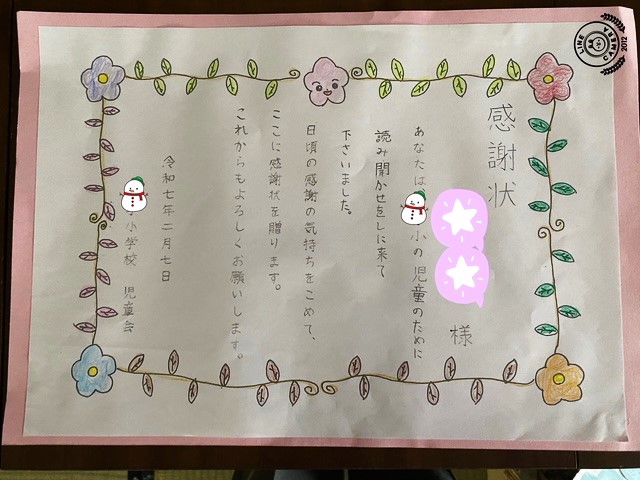 感謝状
様
あなたは 小の児童のために
読み聞かせをしに来て
下さいました。
日頃の感謝の気持ちをこめて、
ここに感謝状を贈ります。
これからもよろしくお願いします。
令和七年二月七日
小学校 児童会
LINE CAMERA 2012